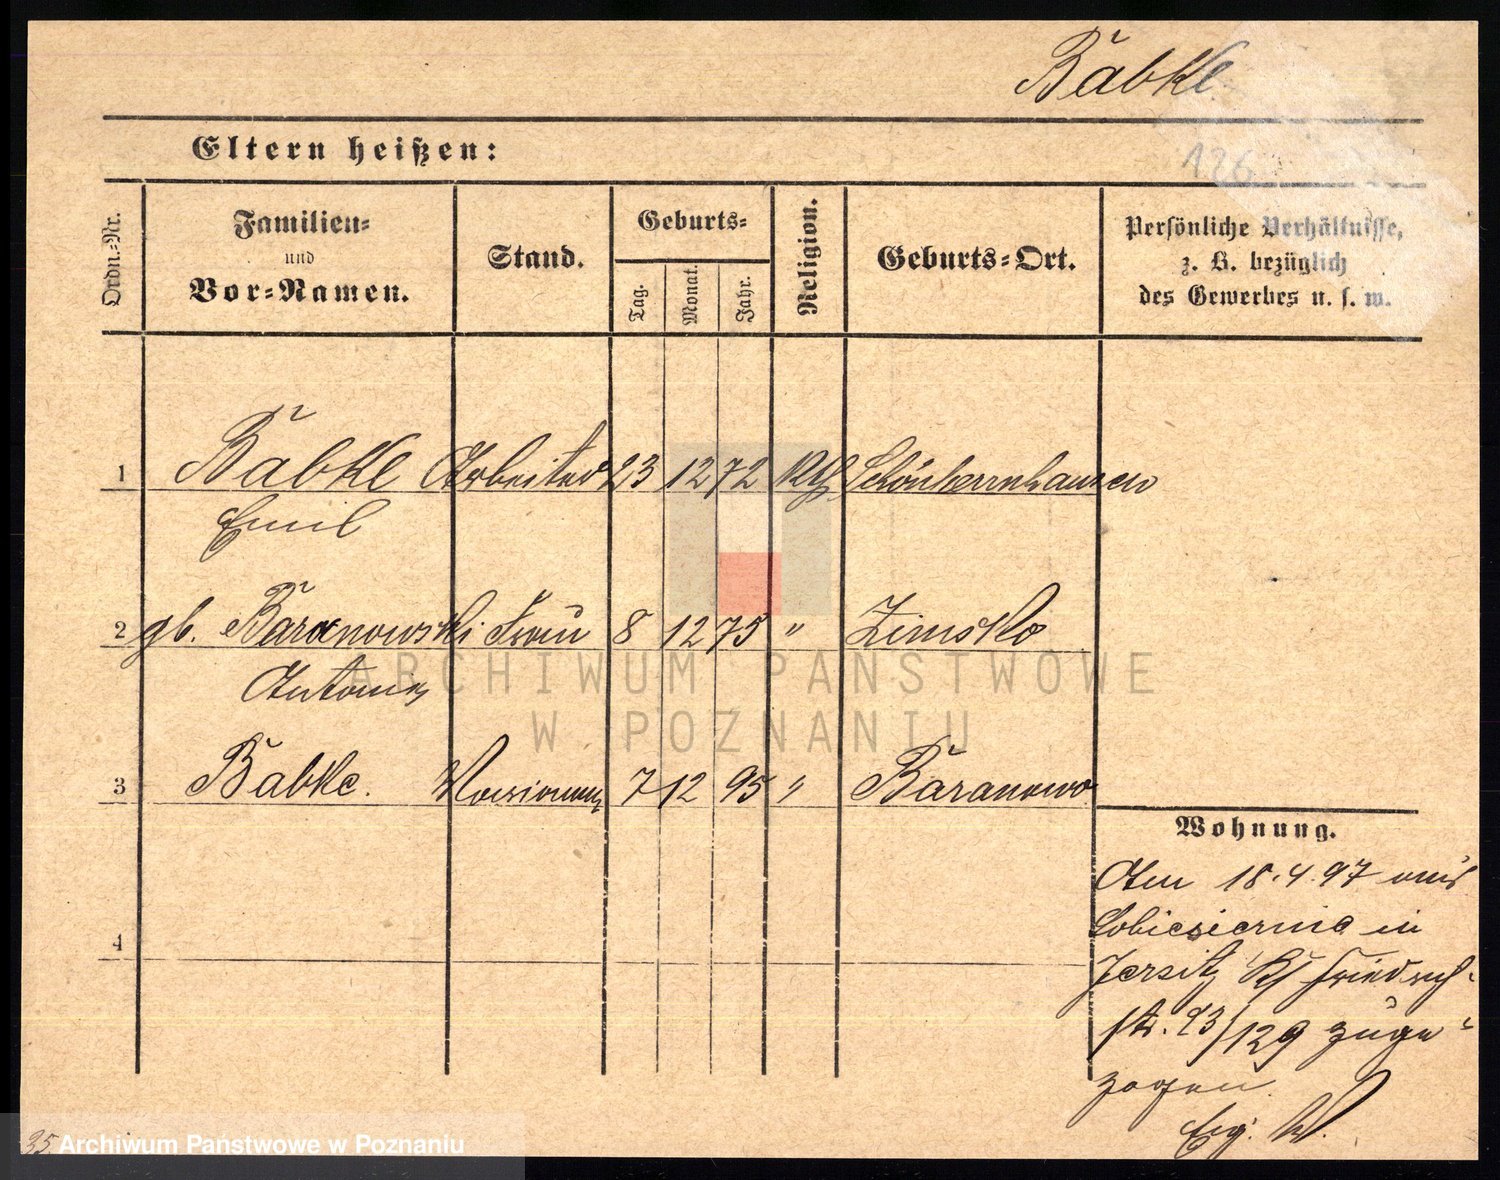 Babke
126
Eltern heißen:
Ordn.-Nr.
Familien-
und
Vor-Namen.
Stand.
Geburts-
Tag.
Monat.
Jahr.
Religion.
Geburts-Ort.
Persönliche Verhältnisse,
z. B. bezüglich
des Gewerbes u. s. w.
1 Babke Arbeiter 23 12 72 Kth Schönherrnhausen
Emil
2 gb. Baranowski Frau 8 12 75 " Zimsko
Antonie
3 Babke. 7 12 95 " Baranowo
Wohnung.
Am 18.4.97 aus
in
Jersitz Kf Friedrich-
str. 93/129 zuge-
zogen
4
ARCHIWUM PAŃSTWOWE
W POZNANIU
35
Archiwum Państwowe w Poznaniu